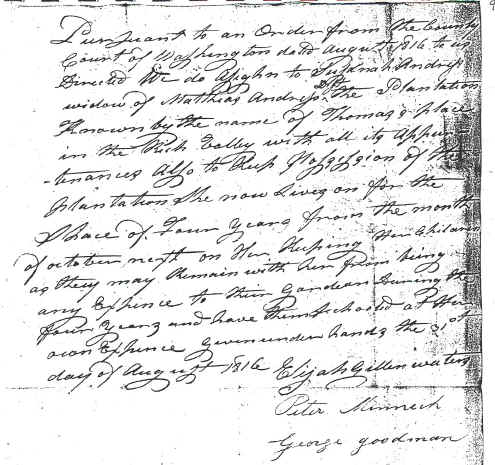 Pursuant to an Order from the County
Court of Washington dated August 1816 to us
Directed We do Assign to Susanah Andress
widow of Matthias Andress Decd the Plantation
Known by the name of Thomas's place
in the Rich Valley with all its Appur-
-tenances Also to Keep Possession of the
Plantation She now Lives on for the
Space of Four Years from the month
of october next on Her Keeping Her Children
as they may Remain with her from being
any Expence to their Gardean During the
four Years and have them Schooled at Her
own Expence Given under hands the 31st
day of August 1816 Elijah Gillenwaters
Peter Minnech
George goodman